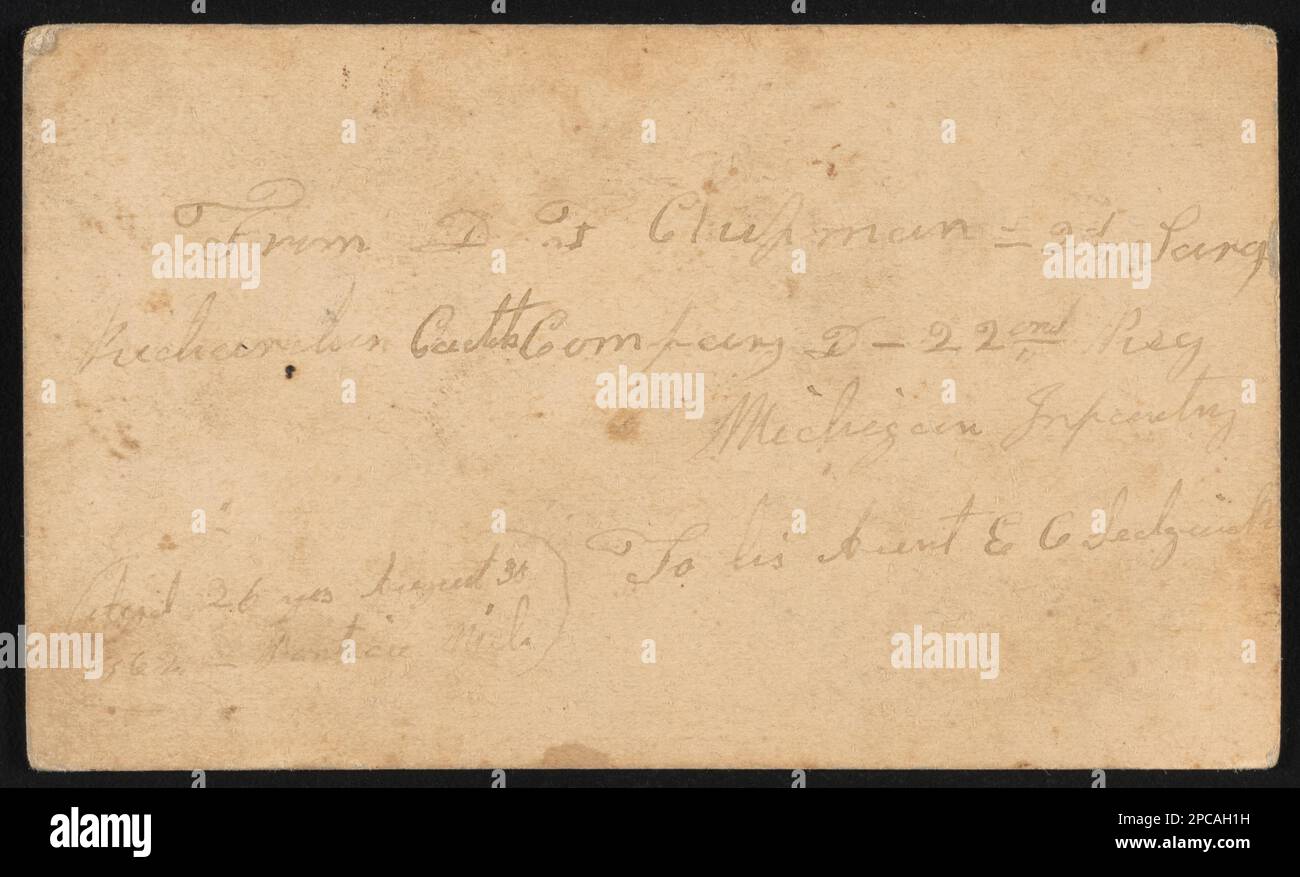 From D T Chapman = 2d Sarg
Richardson Capt Company D - 22nd Reg
Michigan Infantry
To his Aunt E C Sedgwick
Aged 26 yrs August 31
1862 - Pontiac Mich
a alamy
alamy
Image ID: 2PCAH1H
www.alamy.com